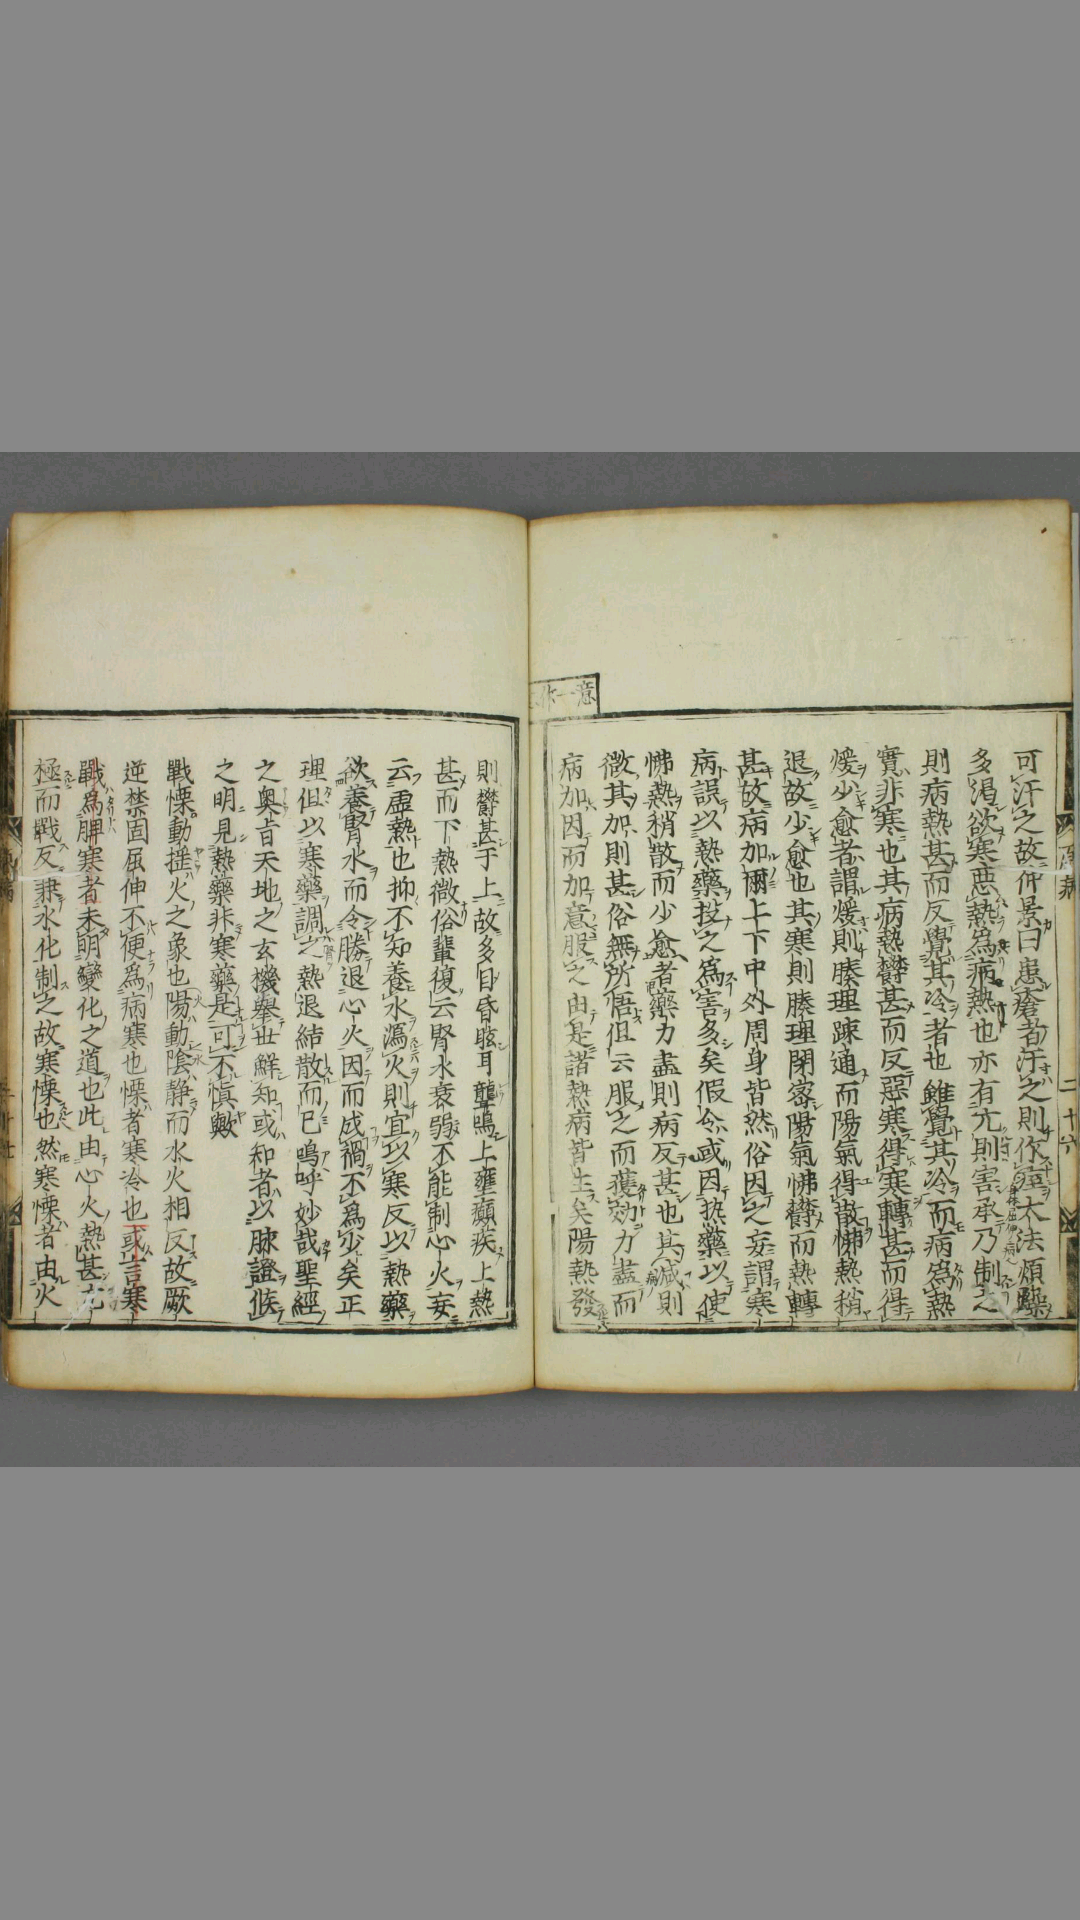 可汗之故仲景曰患瘡者汗之則作痓大法煩躁
多渴欲寒惡熱爲病熱也亦有亢則害承乃制之
則病熱甚而反覺其冷者也雖覺其冷而病爲熱
實非寒也其病熱欝甚而反惡寒得寒轉甚而得
煖少愈者謂煖則腠理踈通而陽氣得散怫熱稍
退故少愈也其寒則腠理閉密陽氣怫欝而熱轉
甚故病加爾上下中外周身皆然俗因之妄謂寒
病誤以熱藥投之爲害多矣假令或因熱藥以使
怫熱稍散而少愈者藥力盡則病反甚也其減則
微其加則甚俗無所悟但云服之而獲効力盡而
病加因而加意服之由是諸熱病皆生矣陽熱發
則欝甚于上故多目昏眩耳聾鳴上壅癲疾上熱
甚而下熱微俗輩復云腎水衰弱不能制心火妄
云虛熱也抑不知養水瀉火則宜以寒反以熱藥
欲養腎水而令勝退心火因而成禍不爲少矣正
理但以寒藥調之熱退結散而已鳴呼妙哉聖經
之奥旨天地之玄機舉世鮮知或知者以脉證候
之明見熱藥非寒藥是可不愼歟
戰慄動揺火之象也陽動陰静而水火相反故厥
逆禁固屈伸不便爲病寒也慄者寒冷也或言寒
戰爲脾寒者未明變化之道也此由心火熱甚亢
極而戰反兼水化制之故寒慄也然寒慄者由火
二十六